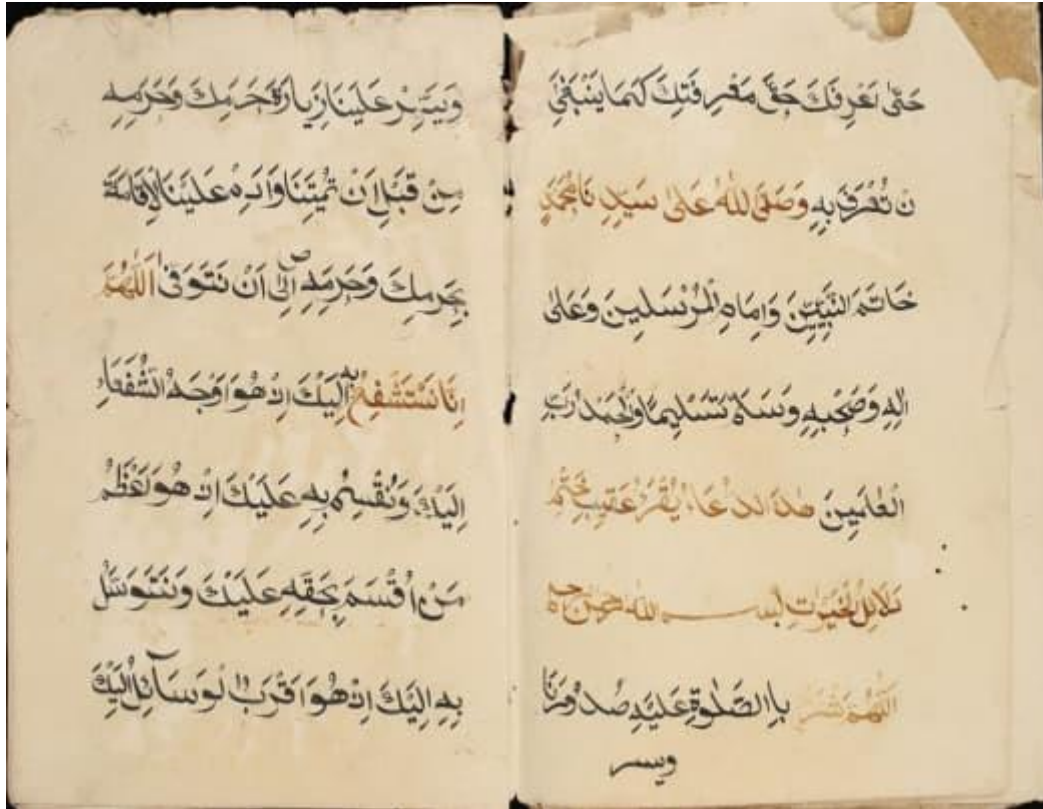 حَتّٰى نَعْرِفَكَ حَقَّ مَعْرِفَتِكَ كَمَا يَنْبَغِىْ
نْ تُعْرَفَ بِهٖ وَصَلَّى اللهُ عَلٰى سَيِّدِنَا مُحَمَّدٍ
خَاتَمِ النَّبِيِّيْنَ وَاِمَامِ الْمُرْسَلِيْنَ وَعَلٰى
اٰلِهٖ وَصَحْبِهٖ وَسَلَّمَ تَسْلِيْمًا وَالْحَمْدُ رَبِّ
الْعٰلَمِيْنَ هٰذَا الدُّعَاءُ يُقْرَءُ عَقِيْبَ خَتْمِ
دَلَائِلُ الْخَيْرَاتِ بســـم الله الرحمن الرحيم
اَللّٰهُمَّ اشْرَحْ بِاالصَّلٰوةِ عَلَيْهِ صُدُوْرَنَا
ويسر
وَيَسِّرْ عَلَيْنَا زِيَارَةَ حَرَمِكَ وَحَرَمِهٖ
مِنْ قَبْلِ اَنْ تُمِيْتَنَا وَاَدِمْ عَلَيْنَا الْاِقَامَةَ
بِحَرَمِكَ وَحَرَمِهٖ ص اِلٰى اَنْ نَتَوَفّٰى اَللّٰهُمَّ
اِنَّا نَسْتَشْفِعُ بِهٖ اِلَيْكَ اِذْ هُوَ اَوْجَهُ الشُّفَعَاءِ
اِلَيْكَ وَنُقْسِمُ بِهٖ عَلَيْكَ اِذْ هُوَ اَعْظَمُ
مَنْ اُقْسِمَ بِحَقِّهٖ عَلَيْكَ وَنَتَوَسَّلُ
بِهٖ اِلَيْكَ اِذْ هُوَ اَقْرَبُ الْوَسَآئِلِ اِلَيْكَ